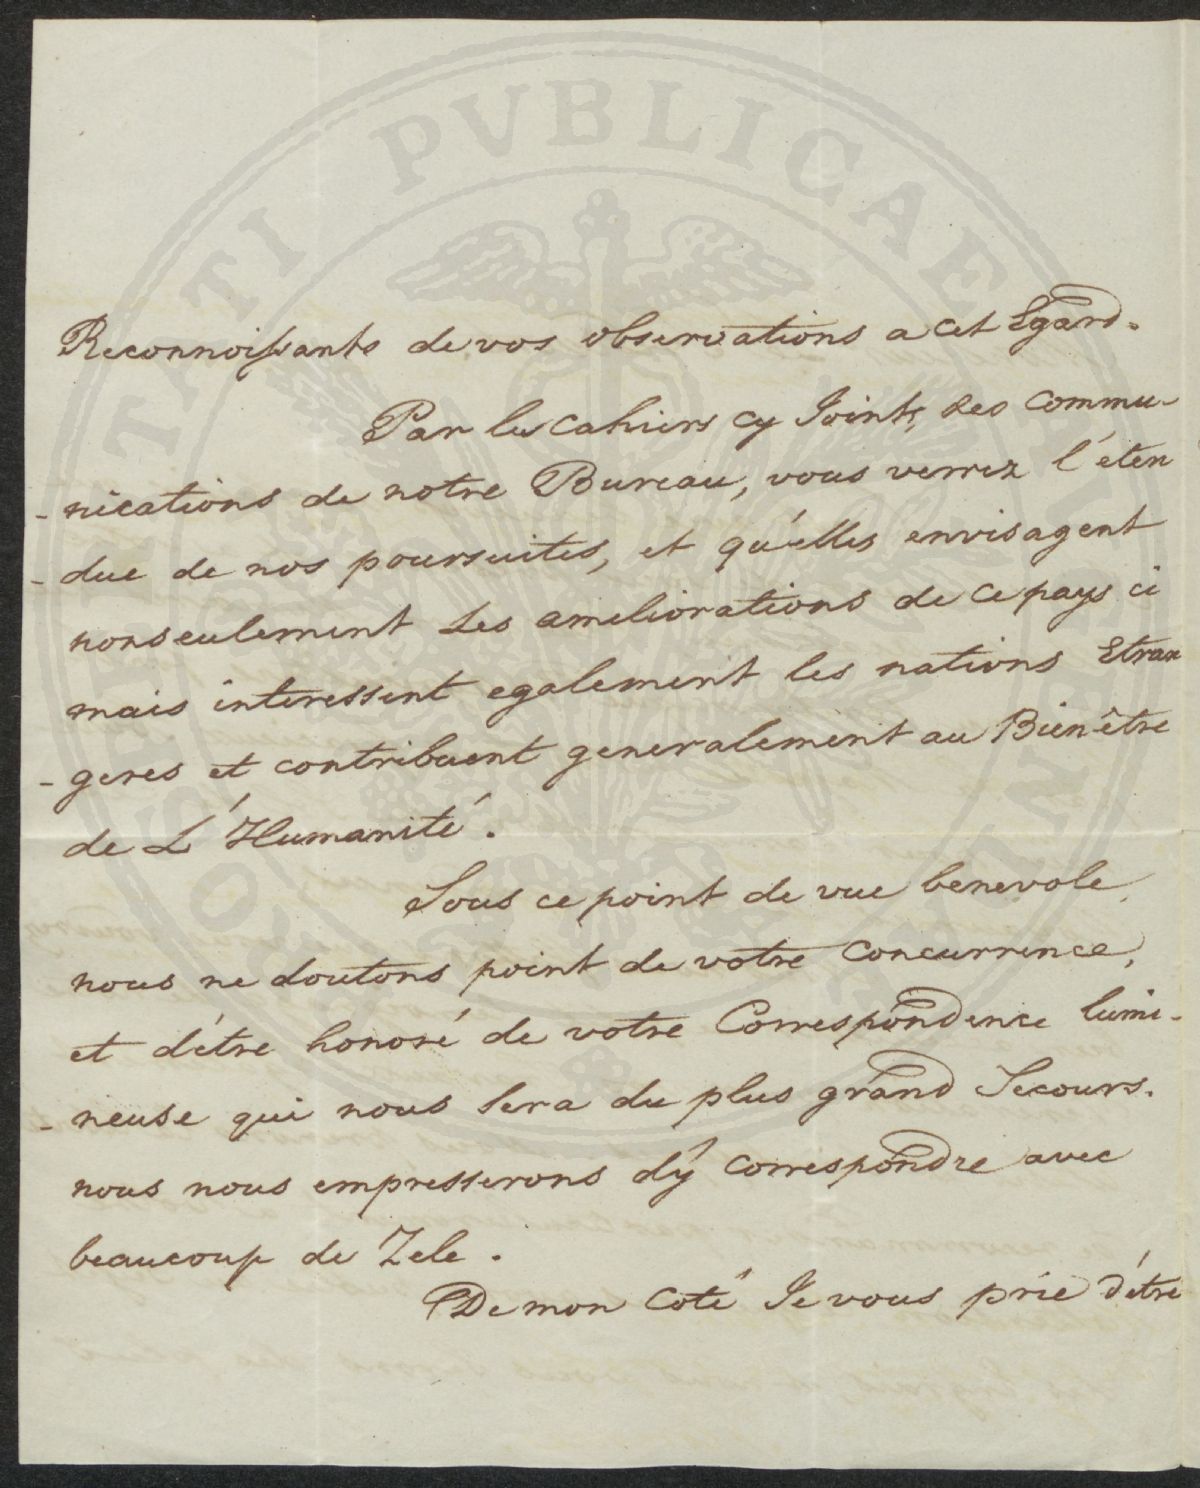 Reconnoissants de vos observations a cet Egard.
Par les Cahiers cy Joints, des commu-
-nications de notre Bureau, vous verrez l'éten
-due de nos poursuites, et qu'elles envisagent
nonseulement les ameliorations de ce pays ci
mais interessent egalement les nations Etran
-geres et contribuent generalement au Bien-être
de L'Humanité.
Sous ce point de vue benevole,
nous ne doutons point de votre Concurrence,
et d'etre honoré de votre Correspondence lumi-
-neuse qui nous sera du plus grand Secours.
nous nous empresserons d'y correspondre avec
beaucoup de Zele.
De mon Coté Je vous prie d'etre